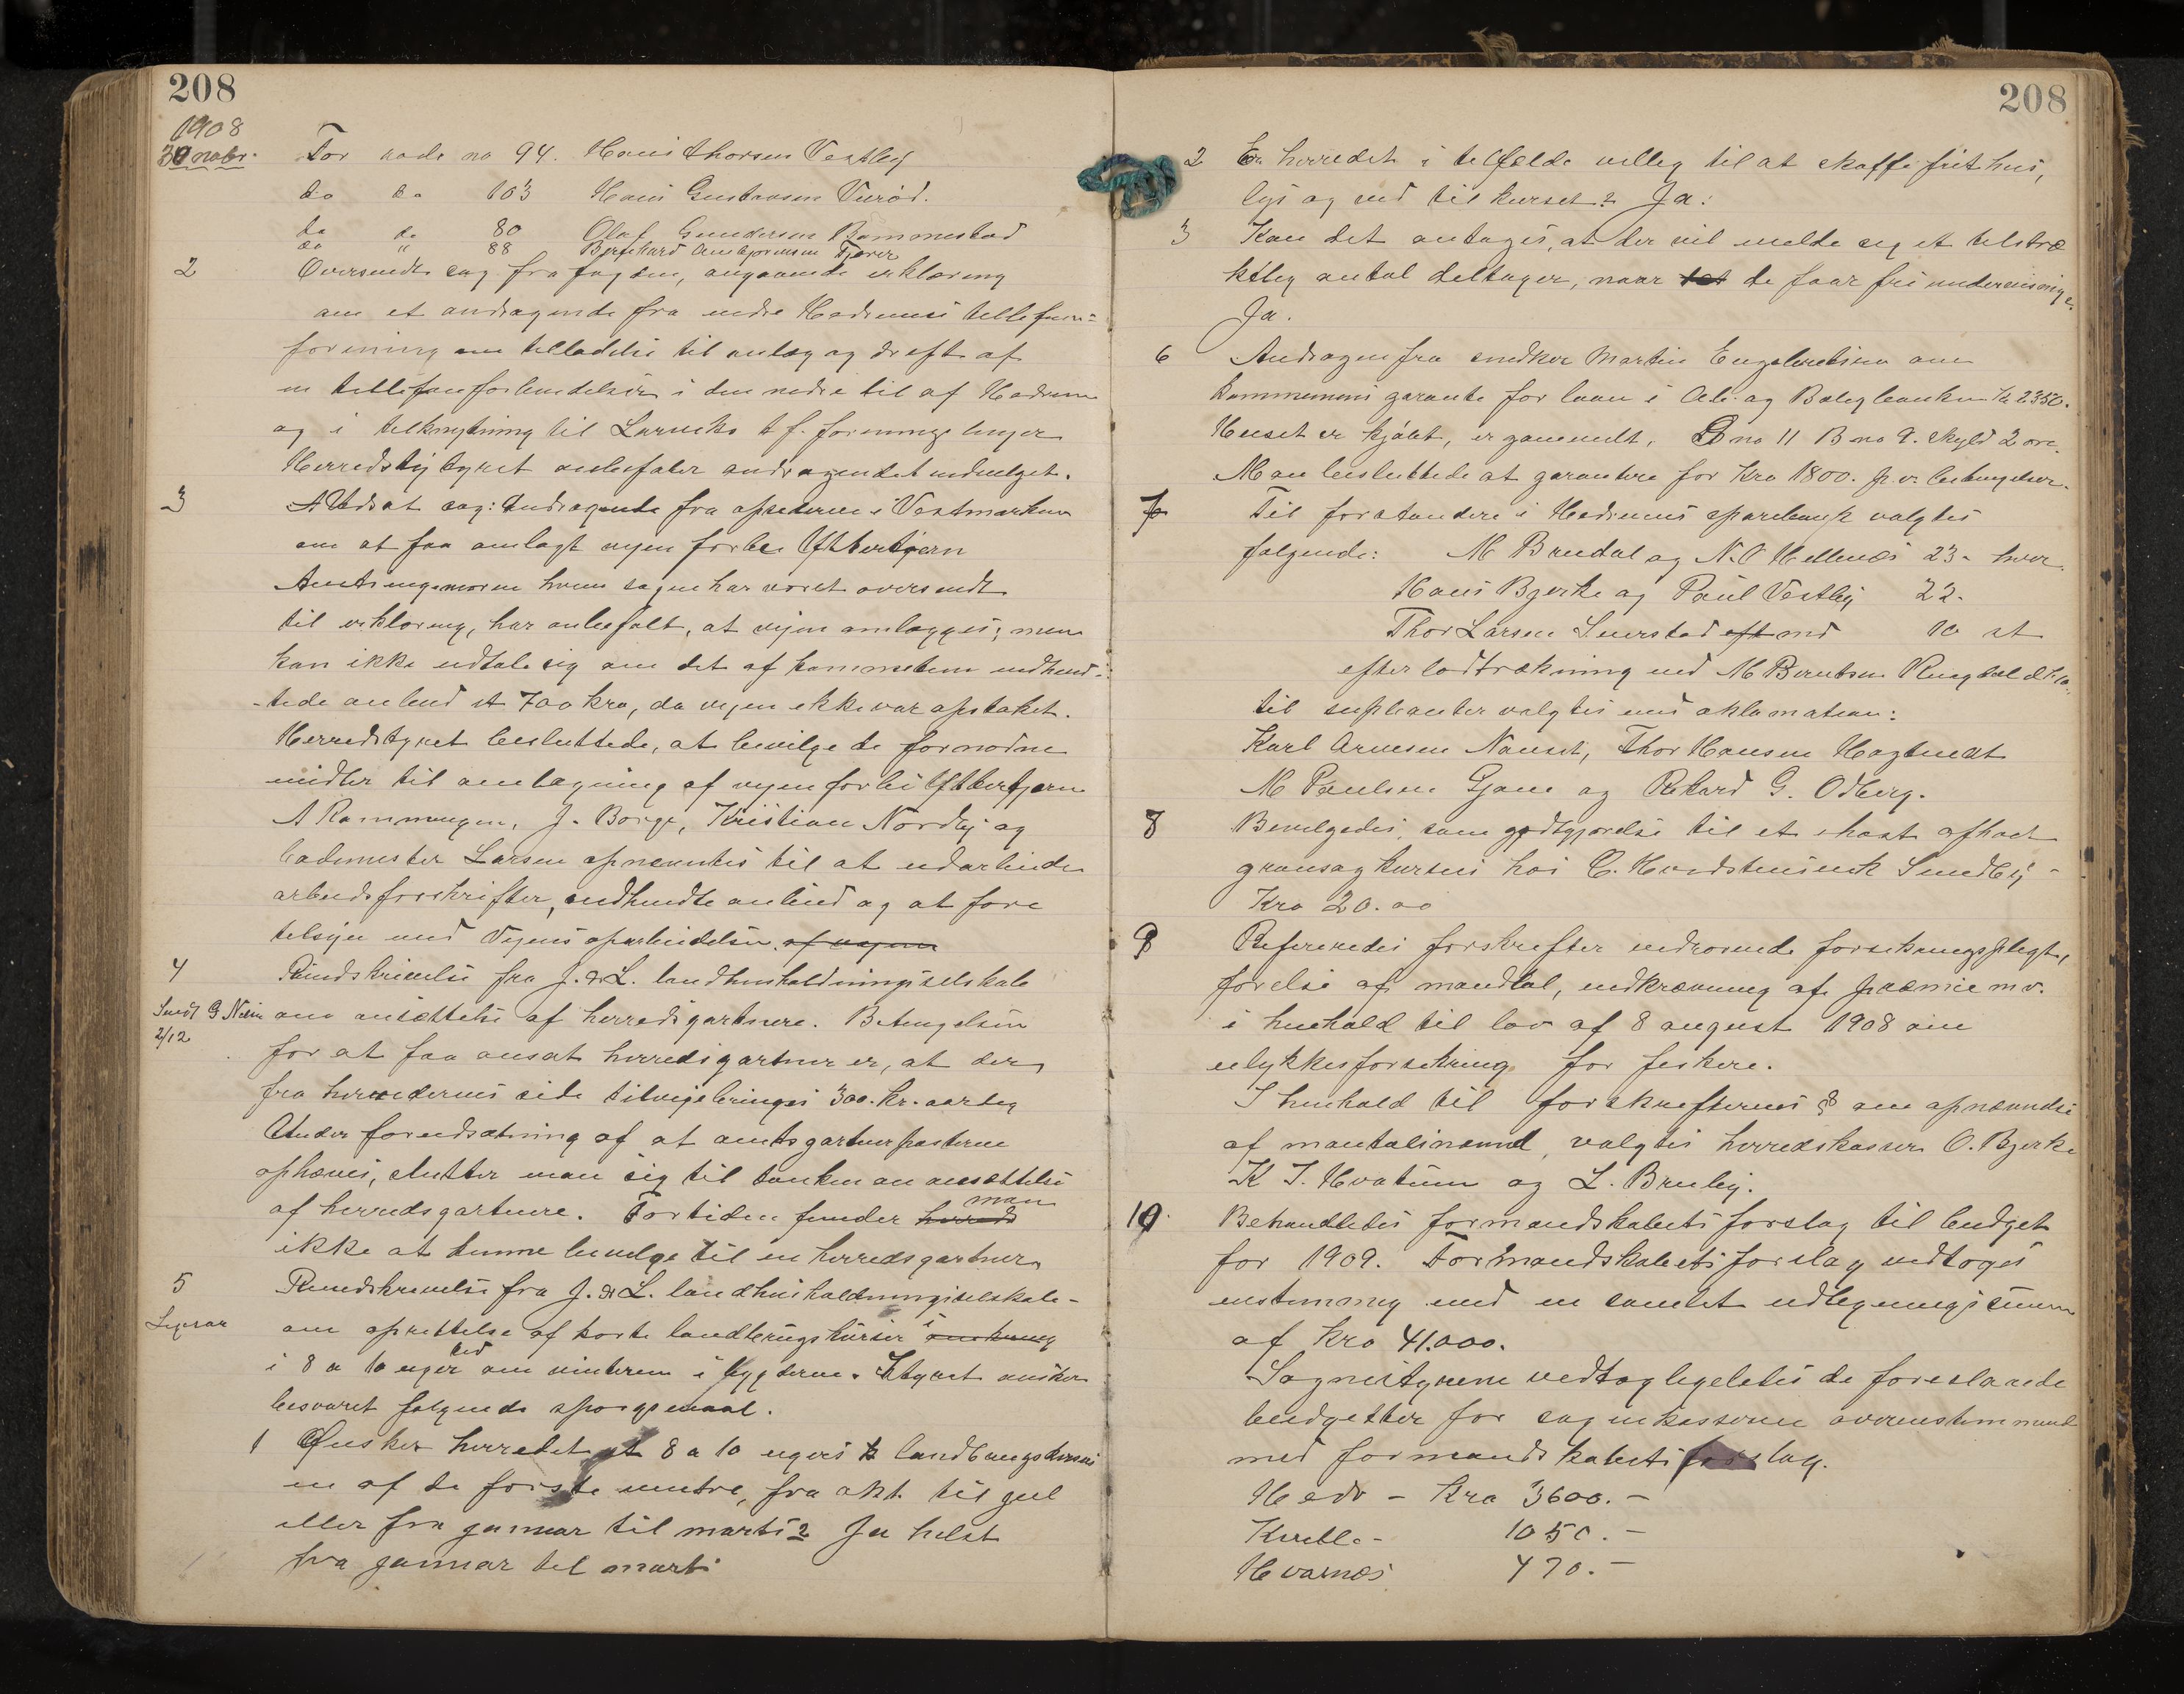 208
1908
30 novbr.
For rode no 94. Hans Thorsen Vestby
do do 103 Hans Gustavsen Vuröd.
do do 80 Olaf Gundersen Bommestad
do " 88 Bernhard Tjører
2 Oversendt sag fra fogden, angaaende erklæring
om et andragende fra nedre Hedrums tellefon=
forening om tilladelse til anlæg og drift af
en tellefonforbindelser i den nedre del af Hedrum
og i tilknytning til Larviks tf. forenings linjer
Herredstyret anbefaler andragendet indvilget.
3 Udsat sag: Andragende fra opsidderne i Vestmarken
om at faa omlagt vejen forbi
Amtsingeniøren hvem sagen har været oversendt
til erklæring, har anbefalt, at vejen omlægges; men
kan ikke udtale sig om det af kommunen indhen-
tede anbud st 700 kro, da vejen ikke var opstaket.
Herredstyret besluttede, at bevilge de fornødne
midler til omlægning af vejen forbi
A Ramnungen, J. Borge, Kristian Nordby og
Larsen opnævntes til at udarbeide
arbeidsforskrifter, indhendte anbud og at føre
tilsyn med Vejens oparbeidelse. af vejen
4 Rundskrivelse fra J. & L. landhusholdningsselskab
Sendt G Niem
2/12
om ansættelse af herredsgartnere. Betingelsen
for at faa ansat herredsgartner er, at der
fra herredernes side tilvejebringes 300 kr. aarlig
Under forudsætning af at amtsgartnerposterne
ophæves, slutter man sig til tanken om ansættelse
af herredsgartnere. For tiden finder herreds man
ikke at kunne bevilge til en herredsgartner
5 Rundskrivelse fra J. & L. landhusholdningsselskab-
om oprettelse af korte landbrugskurser i
i 8 a 10 uger tid om vinteren i bygderne. Styret ønsker
besvaret følgende spørgsmaal.
1 Ønsker herredet et 8 a 10 ugers landbrugskursus
en af de første vintre, fra okt. til jul
eller fra januar til marts? Ja helst
fra januar til marts
208
2 Er herredet i tilfælde villig til at skaffe frit hus,
lys og ved til kurset? Ja.
3 Kan det antages, at der vil melde sig et tilstræ
kkelig antal deltager, naar de faar fri undervisning?
Ja.
6 Andragen fra snedker Martin Engebretsen om
kommunens garanti for laan i Arb. og Boligbanken kr 2350.
Huset er kjøbt, er gammelt, G no 11 B no 9. skyld 2 øre.
Man besluttede at garantere for kro 1800. p. v. betingelser.
7 Til forstandere i Hedrums sparebank valgtes
følgende: M Bredal og N. O Hellenes 23- hver
Hans Bjerke og Paul Vestby 22-
Thor Larsen Seierstad eft md 10 st
efter lodtrækning med M Berntsen
til suplianter valgtes med aklamation:
Karl Arnesen Nanset, Thor Hansen Hagtvedt
M Paulsen Gjone og Rikard G. Odberg.
8 Bevilgedes, som godtgjørelse til et i høst afholt
grønsagkursus hos C. Hvidstensenk Sundby -
Kro 20.00
9 Refereredes forskrifter vedrørende forsikringspligt,
førelse af mandtal, indkrævning af præmie m v.
i henhold til lov af 8 august 1908 om
ulykkesforsikring for fiskere.
I henhold til forskrifternes § om opnævnelse
af mantalsnemd, valgtes herredskasserer O. Bjerke
K I. Hvatum og L. Brenby.
10 Behandledes formandskabets forslag til budget
for 1909. Formandskabets forslag vedtoges
enstemmig med en samlet udlegningssum
af kro 41.000.
Sognestyrene vedtog ligeledes de foreslaaede
budgetter for sognekasserne overenstemmende
med formandskabets forslag.
Hedr - Kro 3600.-
Kvelle- 1050.-
Hvarnes 470.-